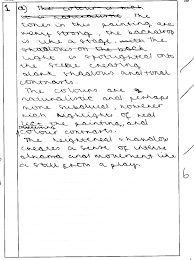 1 a) The colour is not
it is naturalistic The
tones in this painting are
very strong, the backdrop
is like a stage, with The
shadows on the back
light is spotlighted onto
the scene creating
dark shadows and tonal
contrasts.
The colours are
naturalistic and perhaps
more subdued, however
real highlights of red
the painting, and
colour contrasts.
The heightened shadow
creates a sense of intense
drama and movement like
a still from a play.
6